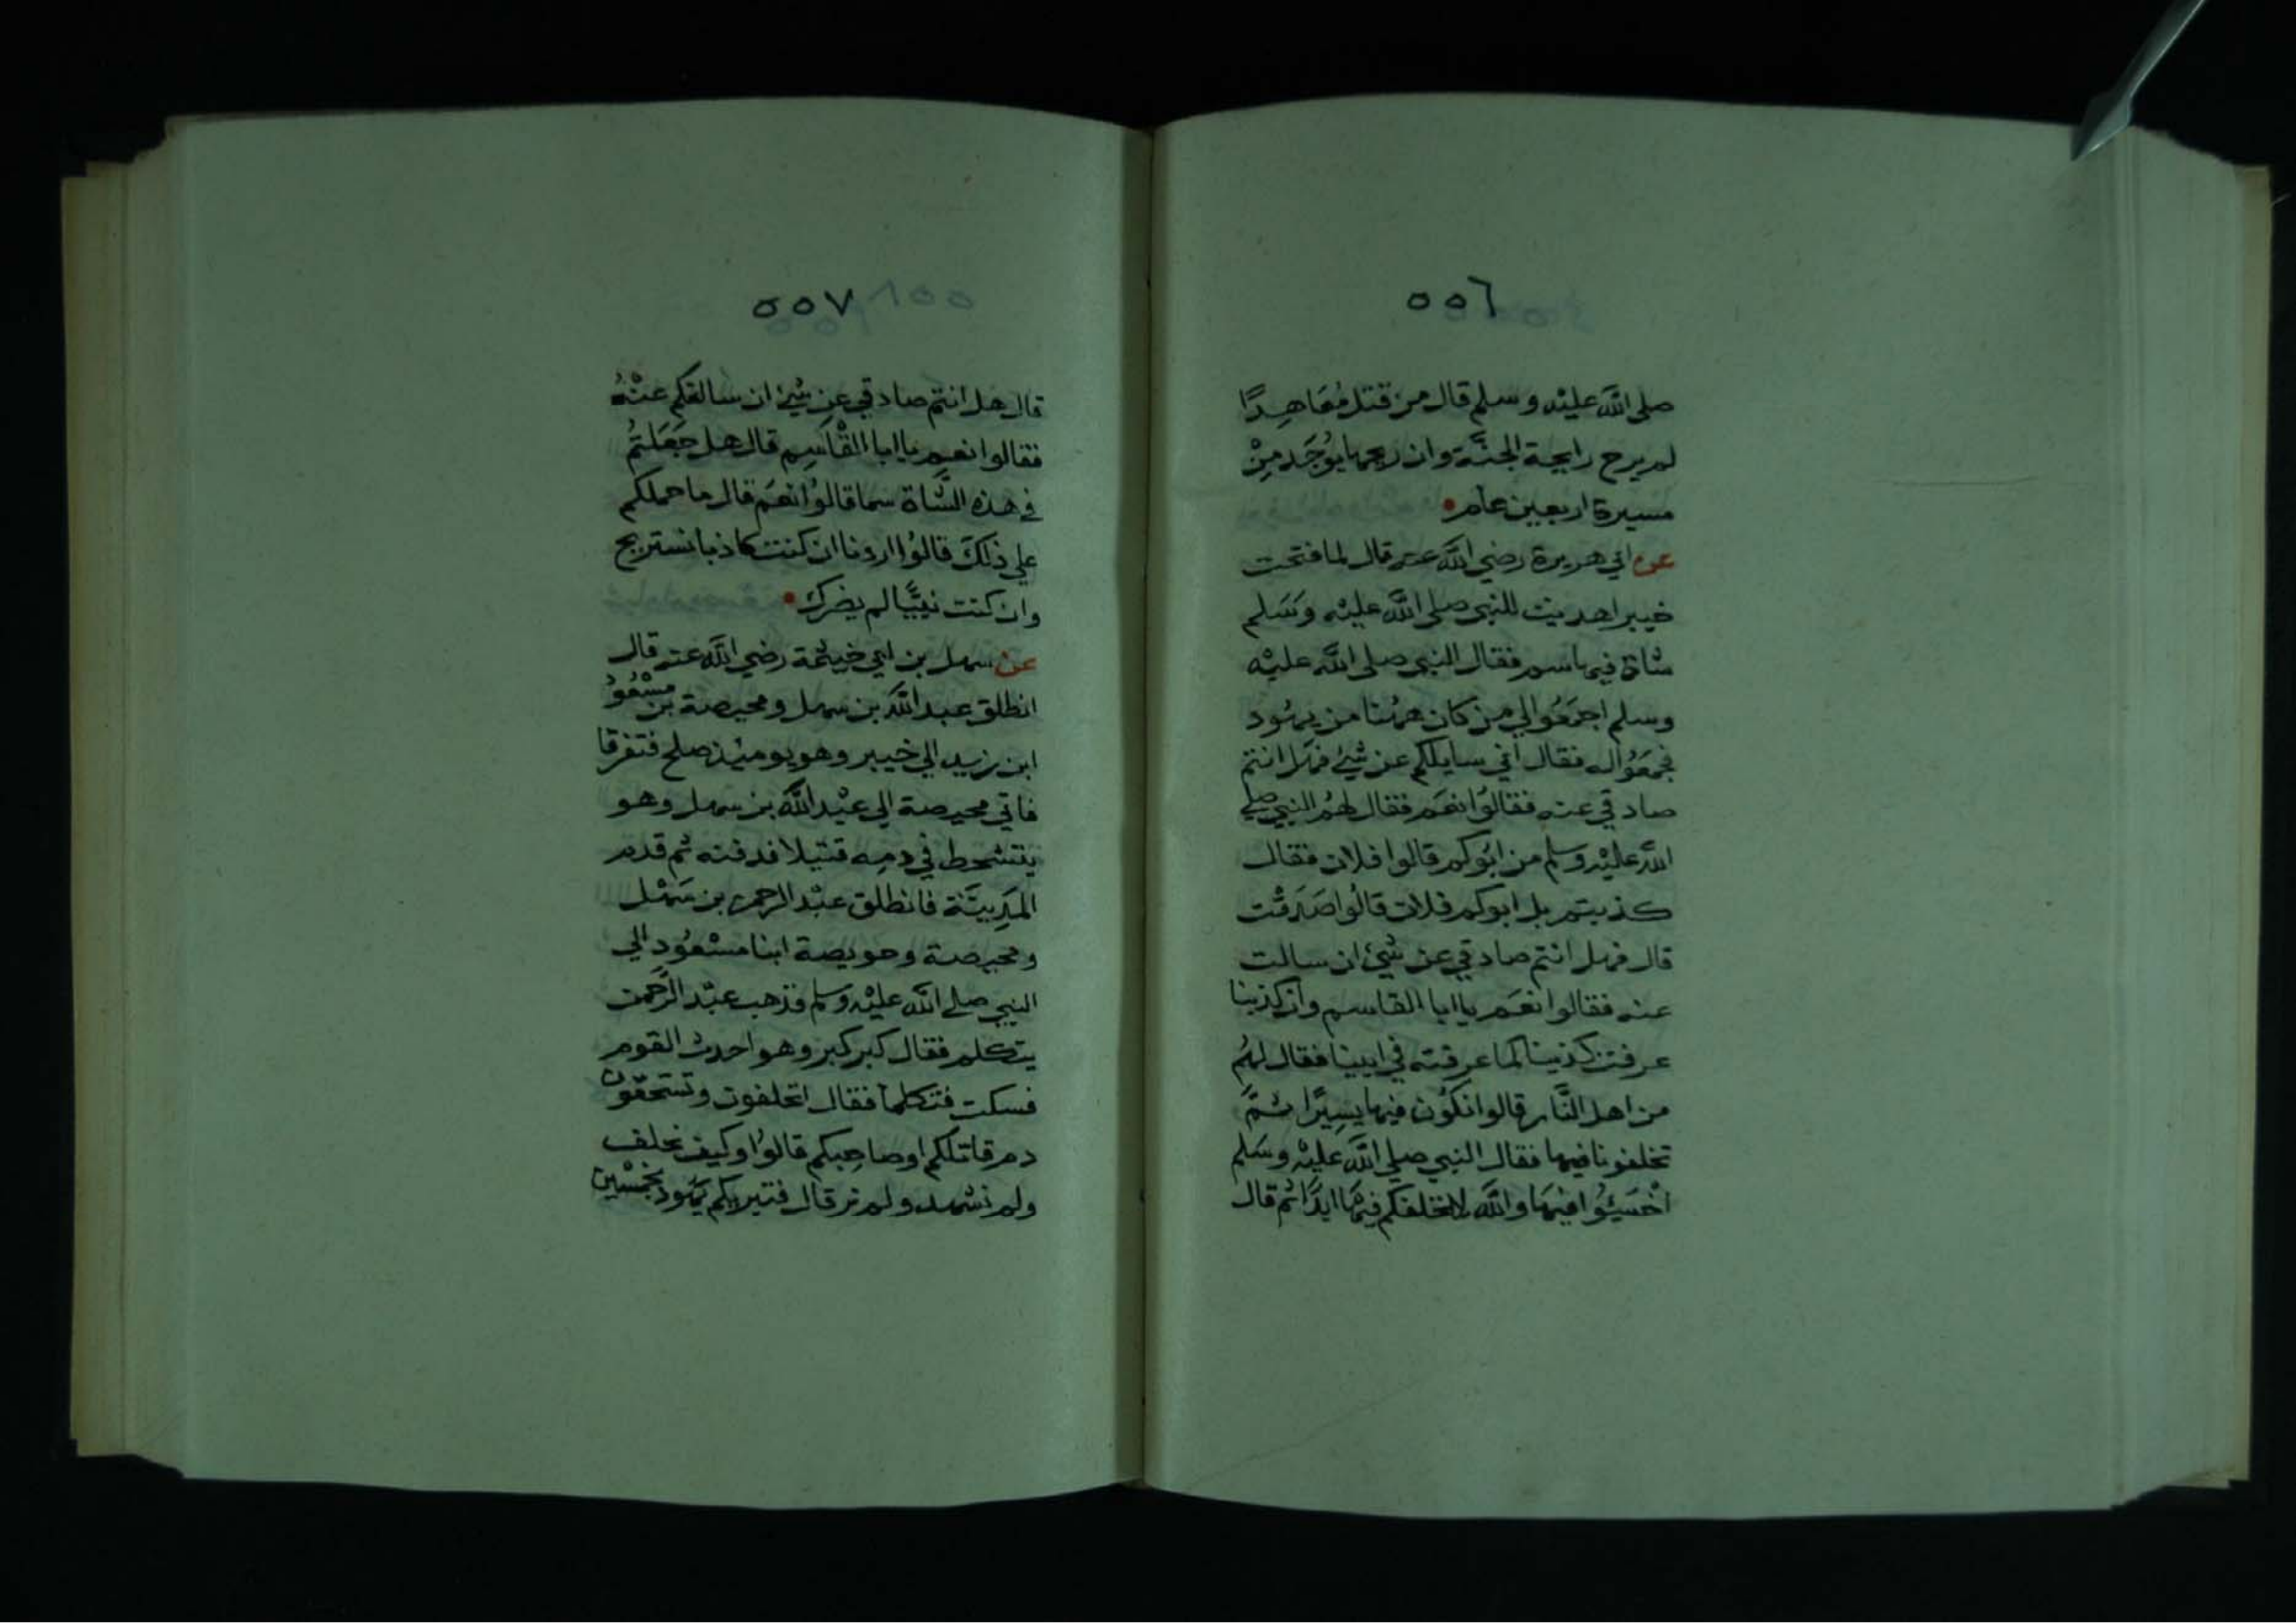 ٥٥٦
صلى الله عليه وسلم قال من قتل مُعَاهِدًا
لم يرح رايحة الجنَّة وان ريحها يوُجَد مِنْ
مسيرة اربعين عام
عن ابي هريرة رضي الله عنه قال لما فتحت
خيبر اهديت للنبي صلى الله عليْه وَسَلم
شاة فيها سم فقال النبي صلى الله عليْه
وسلم اجمَعُوا لي من كان ههُنا من يهُود
فجمَعُوا له فقال اني سايلكم عن شيْ فهَل انتم
صادقي عنه فقالوُا نعَم فقال لهمُ النبي صلي
الله عليْه وسلم من ابُوكم قالوا فلان فقال
كذبتم بل ابوكم فلان قالُوا صَدَقْت
قال فهل انتم صادقي عن شيْ ان سالت
عنه فقالوا نعَم يا ابا القاسم وان كذبنا
عرفت كذبنا كما عرفته في ابينا فقال لهمُ
من اهل النَّار قالوا نكُون فيها يسِيرًا ثمَّ
تخلفونا فيها فقال النبي صلي الله عليْه وسَلم
اخْسَئُوا فيهَا والله لا نخلفكم فيهَا ابدًا ثم قال
٥٥٧
قال هل انتم صادقي عن شيْ ان سالتكم عنْهُ
فقالوا نعم يا ابا القْاسِم قال هل جَعَلتمُ
في هذه الشَّاة سما قالوُا نعَم قال ما حملكم
علي ذلكَ قالوُا اردنا ان كنت كاذبا نستريح
وان كنت نبيًّا لم يضرك
عن سهل بن ابي خيثمة رضي الله عنه قال
انطلق عبد الله بن سهل ومحيصة بن مسْعُود
ابن زيد الي خيبر وهو يوميْذ صلح فتفرقا
فاتي محيصة الي عبْد الله بن سهل وهو
يتشحط في دمِه قتيلا فدفنه ثم قدم
المدِينَة فانطلق عبْد الرحمن بن سَهْل
ومحيصة وحويصة ابنا مسْعوُد الي
النبي صلي الله عليْه وسلم فذهب عبْد الرَّحمن
يتكلم فقال كبر كبر وهو احدث القوم
فسكت فتكلما فقال اتحلفون وتستحقون
دم قاتلكم او صاحِبكم قالوُا وكيف نحلف
ولم نشهد ولم نر قال فتبريكم يَهود بخمْسِين